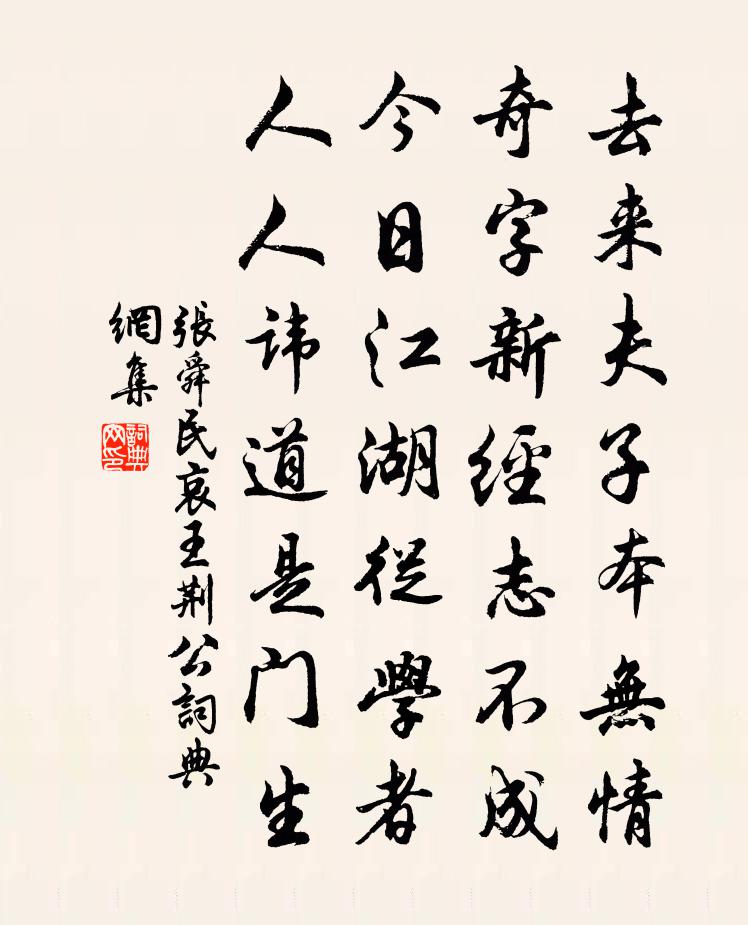 去来夫子本無情
奇字新經志不成
今日江湖從學者
人人諱道是門生
張舜民哀王荆公詞典
網集
詞典
网印